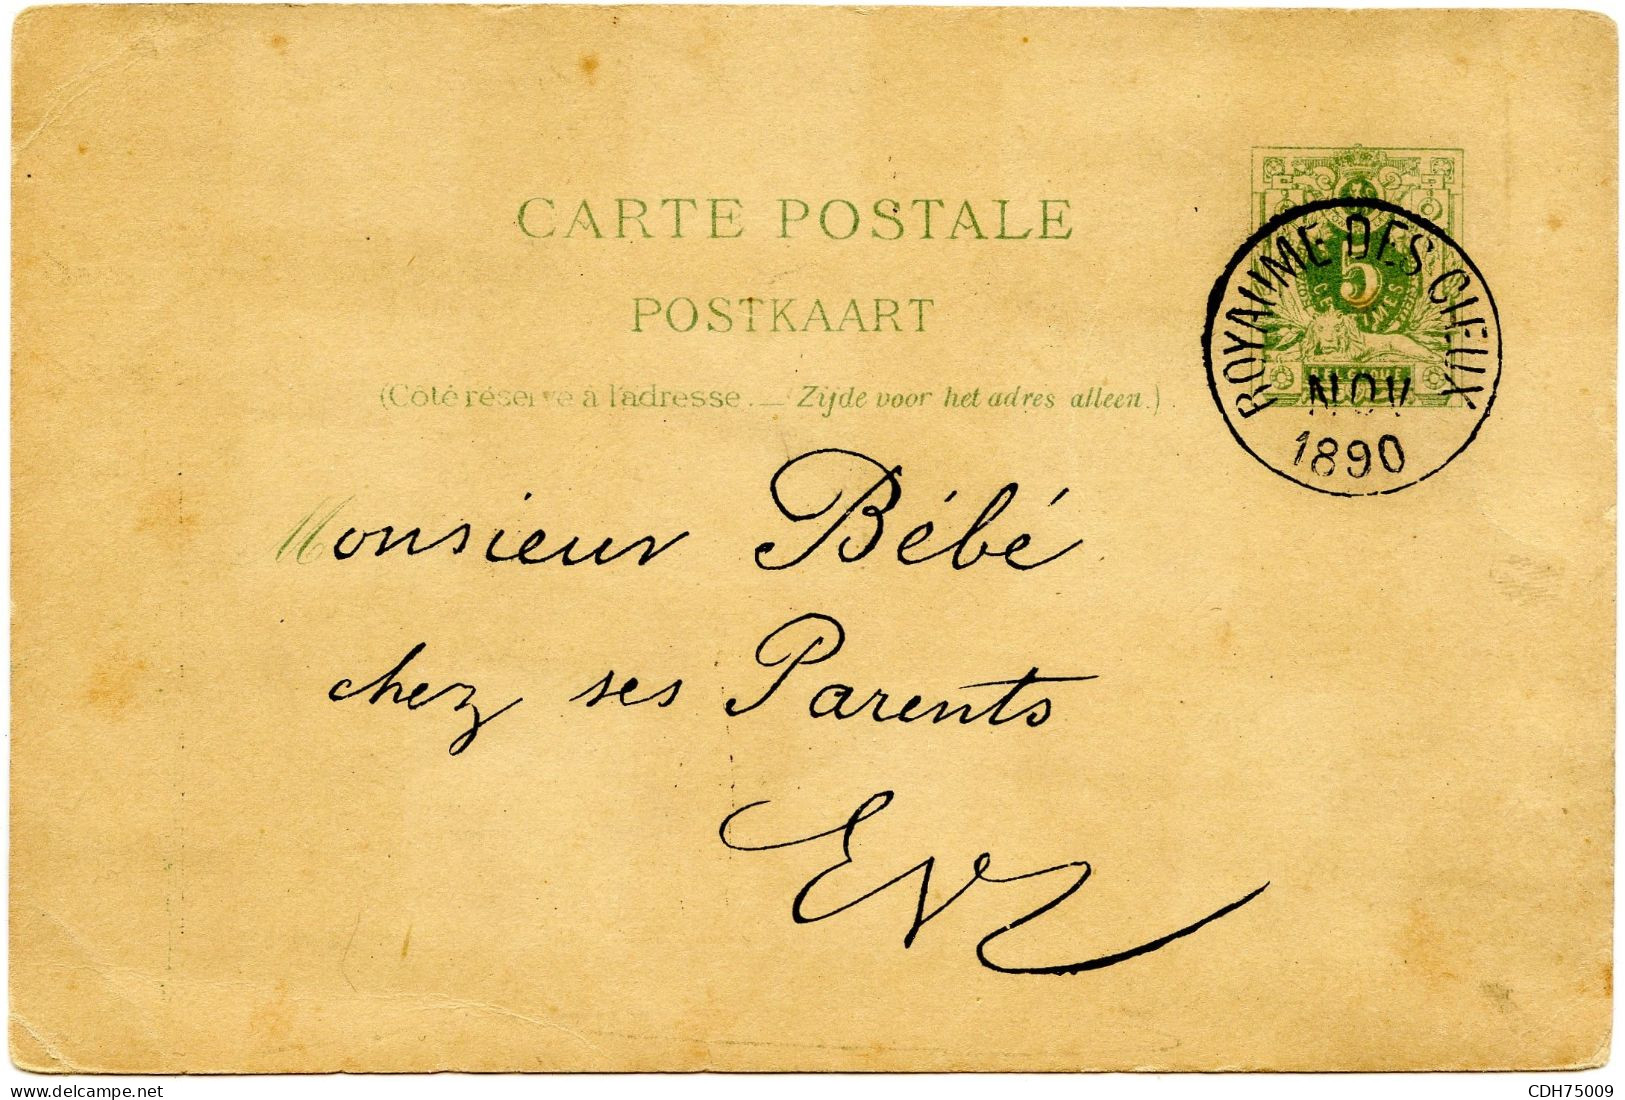 CARTE POSTALE
POSTKAART
(Côté réservé à l'adresse. — Zijde voor het adres alleen.)
5
CENTIMES
BELGIQUE
ROYAUME DES CIEUX
NOV
1890
Monsieur Bébé
chez ses Parents
EV
www.delcampe.net
CDH75009